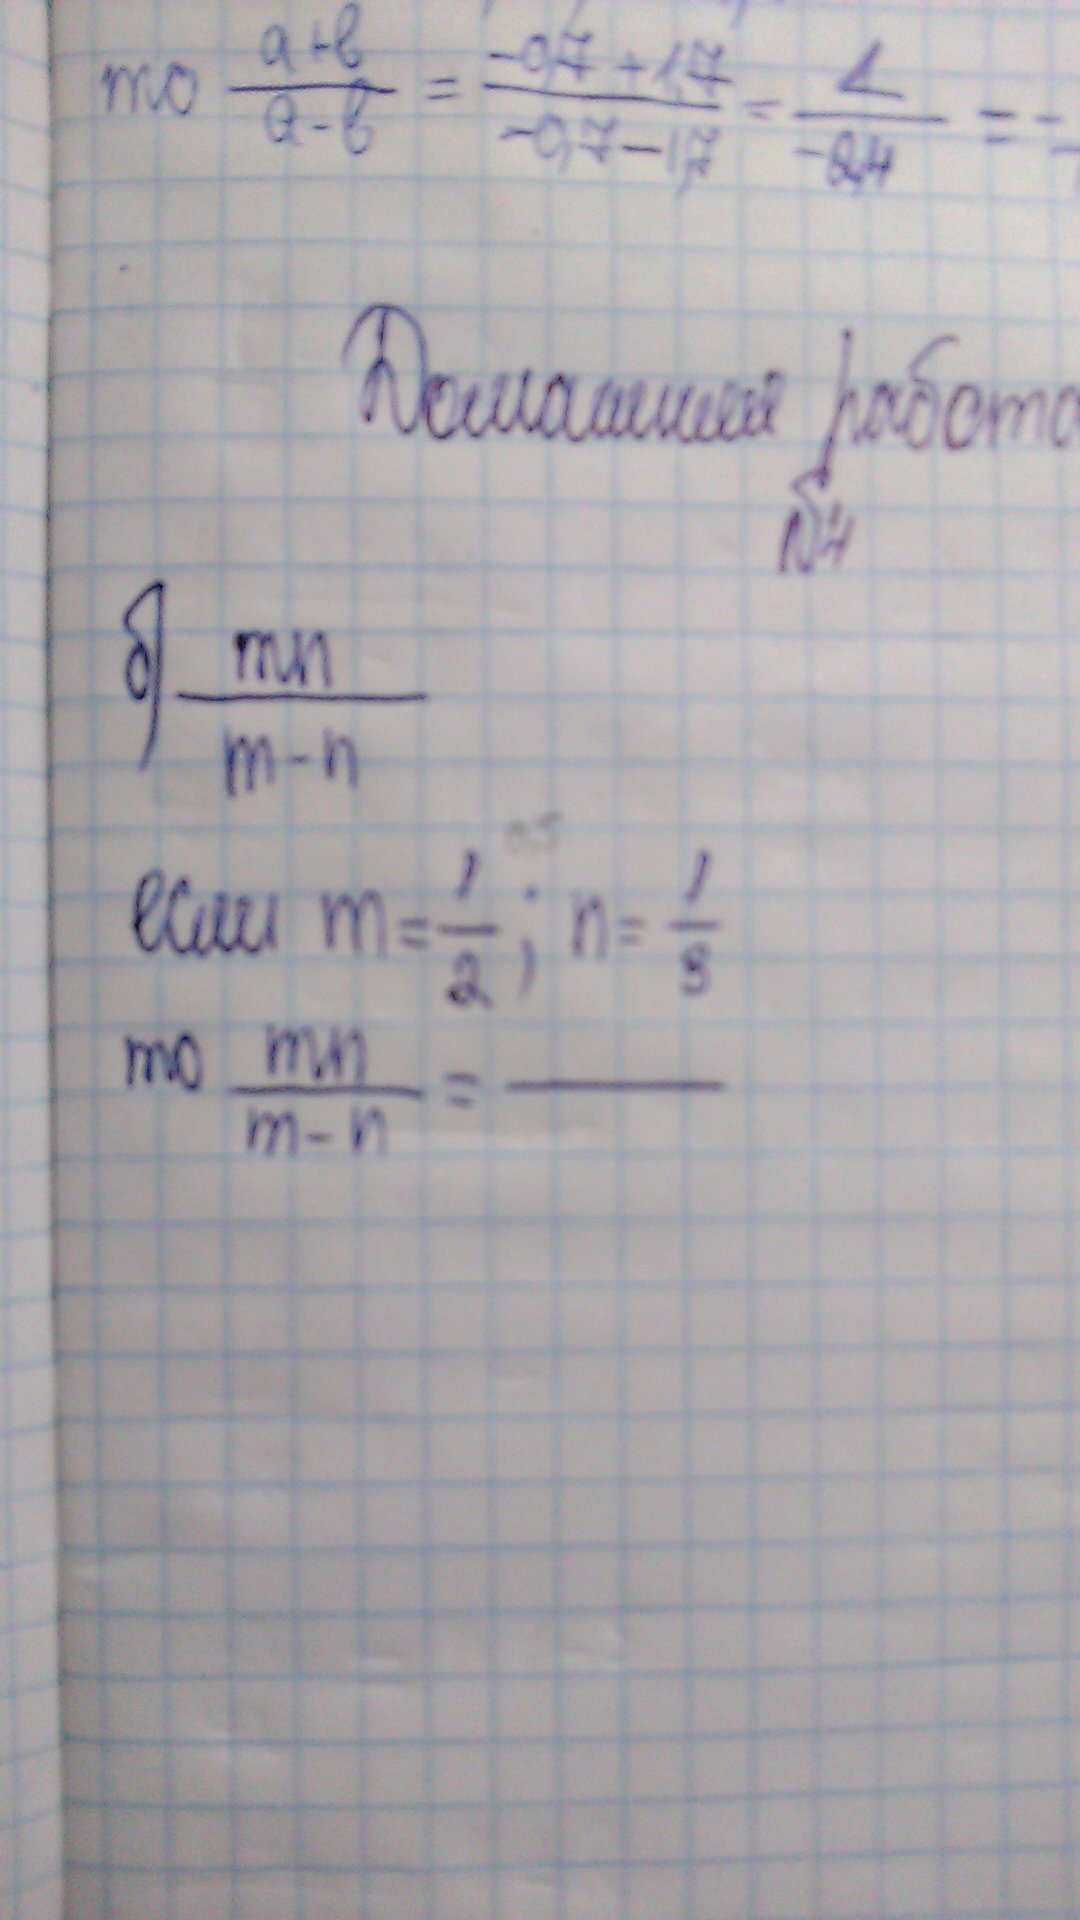 то (a+b)/(a-b) = (-0,7+1,7)/(-0,7-1,7) = 1/(-2,4) = -
Домашняя работа
№4
б) mn/(m-n)
0,5
если m=1/2; n=1/3
то mn/(m-n) =